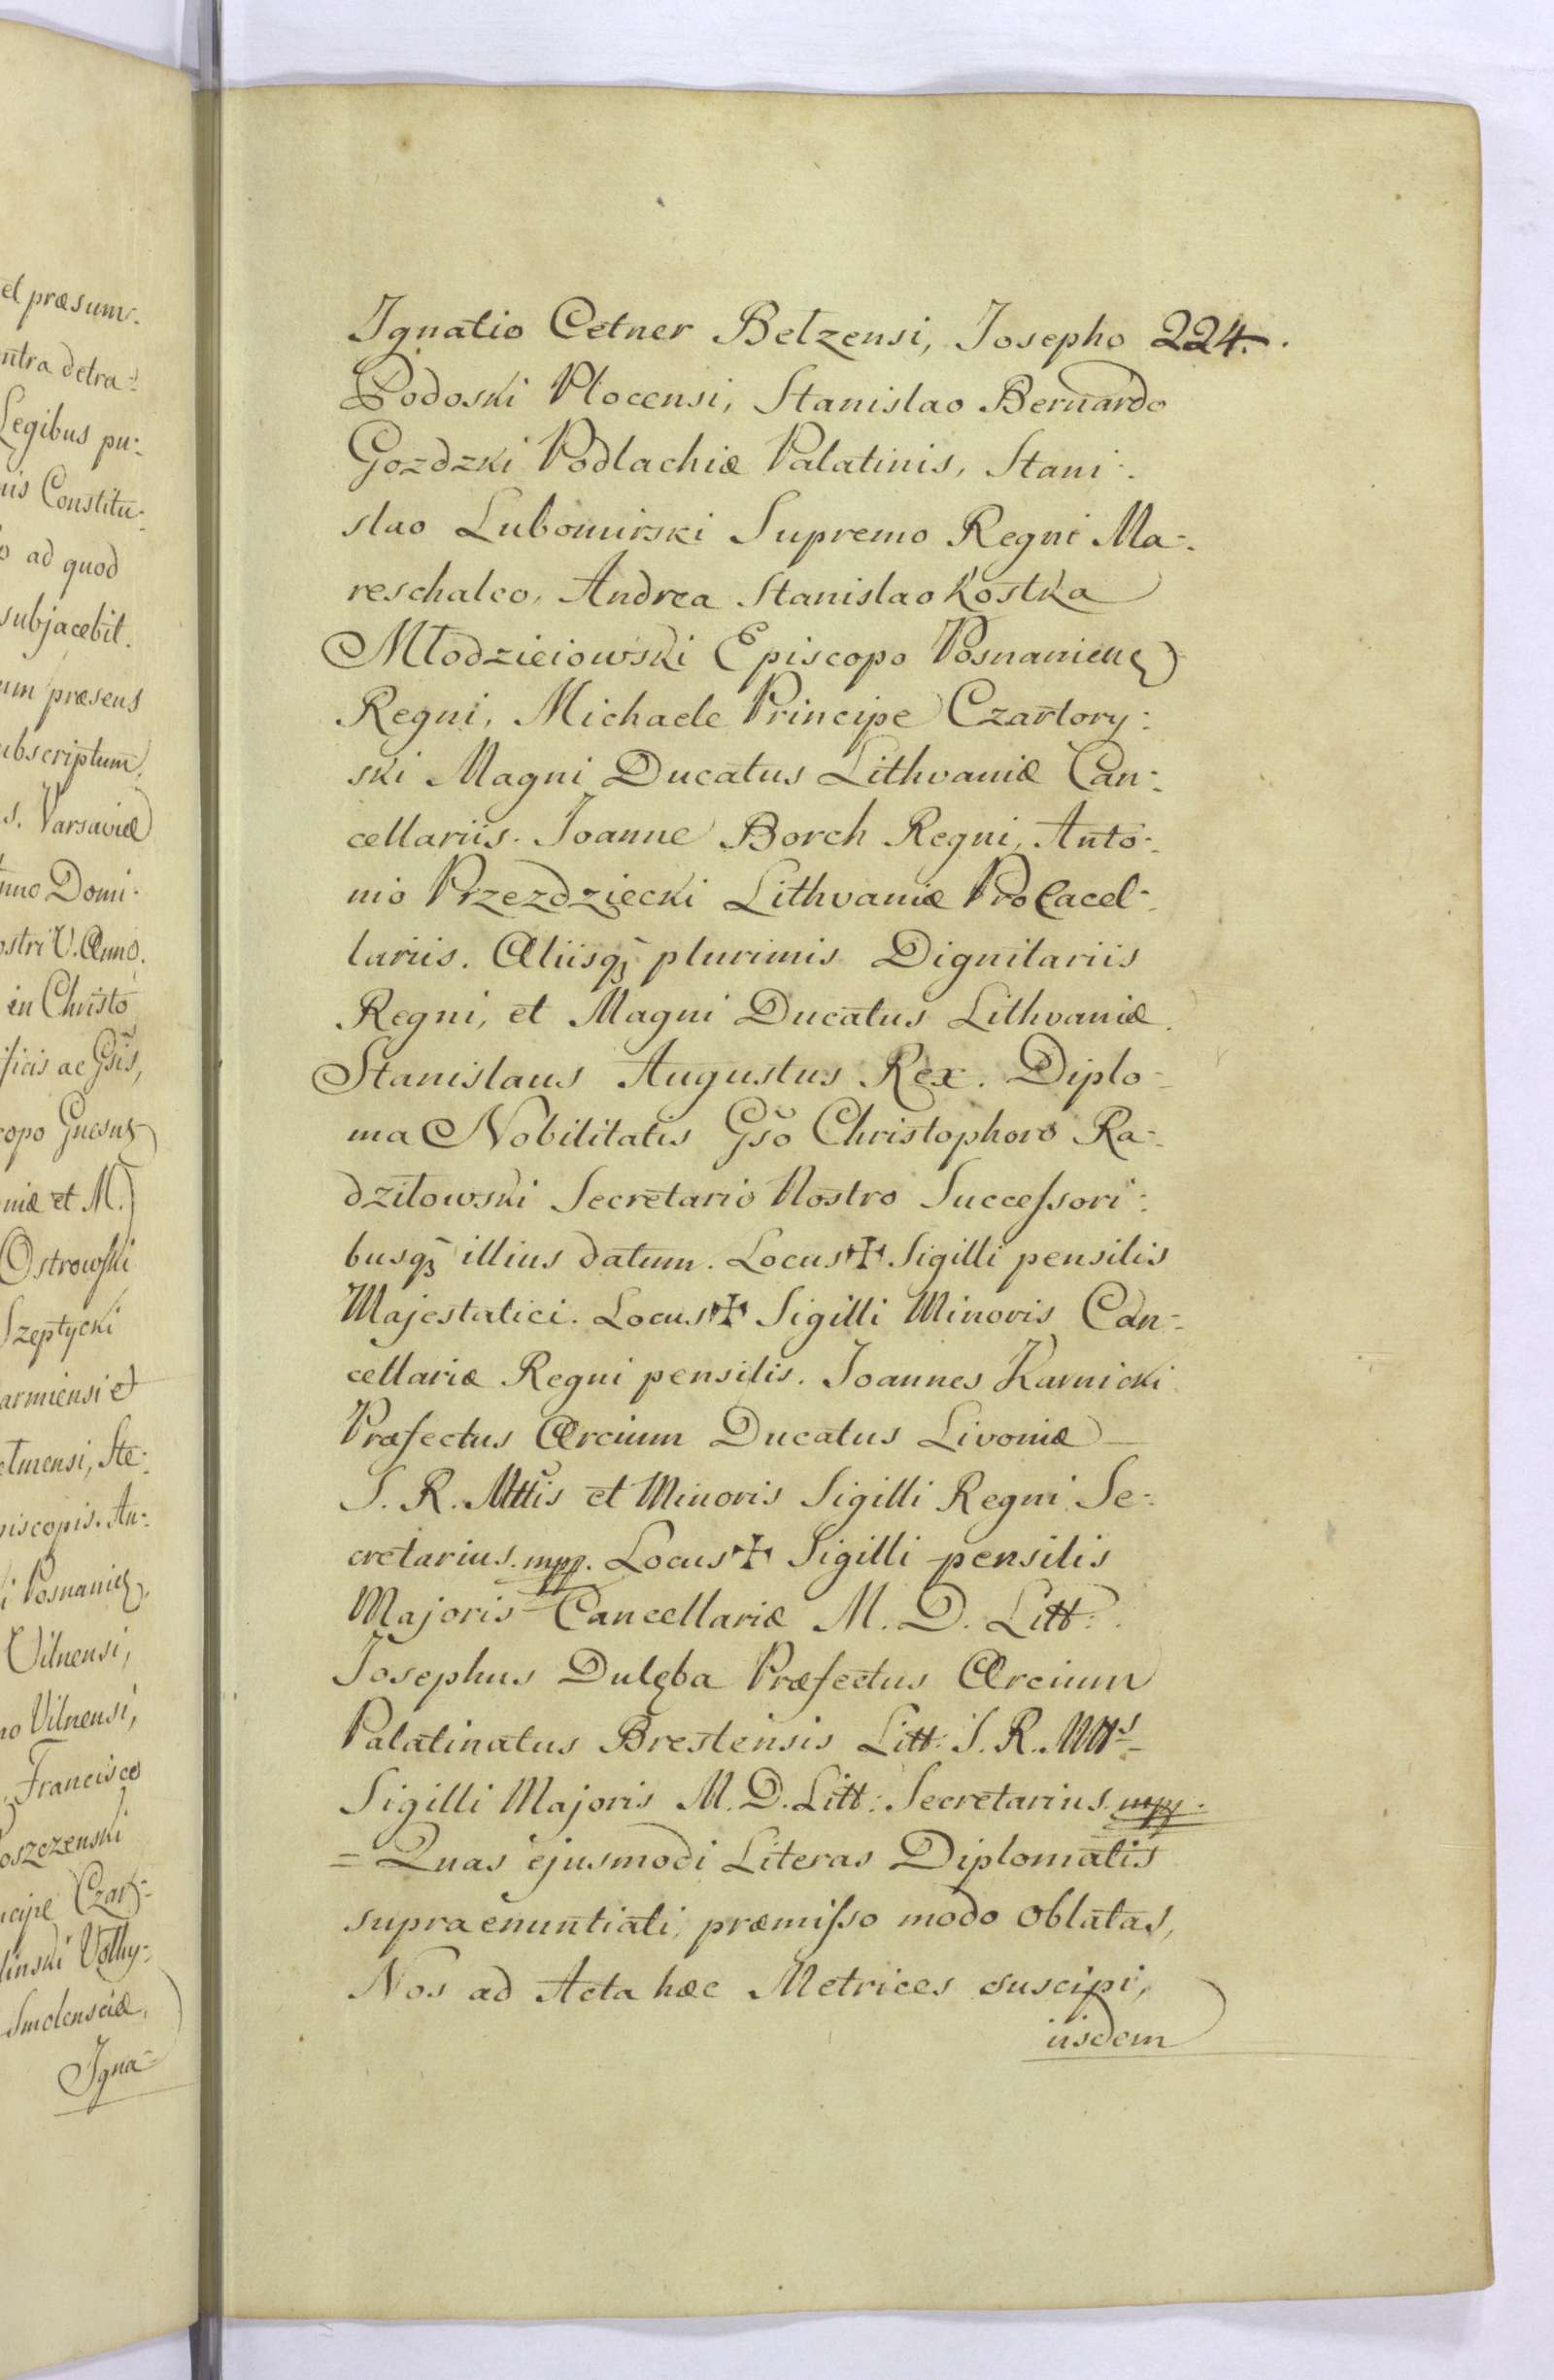 et præsum-
ntra detra-
Legibus pu-
nis Constitu-
o ad quod
subjacebit.
um præsens
ubscriptum,
s. Varsaviæ
nno Domi-
ostri V. Anno.
in Christo
ificis ac Gsis,
copo Gnesn
niæ et M.
Ostrowski
Szeptycki
armiensi et
elmensi, Ste-
piscopis. An-
i Posnanien
Vilnensi,
no Vilnensi,
Francisco
oszczenski
ncipe Czar-
linski Volhy-
Smolensciæ,
Igna-
Ignatio Cetner Belzensi, Josepho 224.
Podoski Plocensi, Stanislao Bernardo
Gozdzki Podlachiæ Palatinis, Stani-
slao Lubomirski Supremo Regni Ma-
reschalco, Andrea Stanislao Kostka
Młodzieiowski Episcopo Posnanien
Regni, Michaele Principe Czartory-
ski Magni Ducatus Lithvaniæ Can-
cellariis. Joanne Borch Regni, Anto-
nio Przezdziecki Lithvaniæ ProCacel-
lariis. Aliisqꝫ plurimis Dignitariis
Regni, et Magni Ducatus Lithvaniæ.
Stanislaus Augustus Rex. Diplo-
ma Nobilitatis Gso Christophoro Ra-
dziłowski Secretario Nostro Successori-
busqꝫ illius datum. Locus ✠ Sigilli pensilis
Majestatici. Locus ✠ Sigilli Minoris Can-
cellariæ Regni pensilis. Joannes Karnicki
Præfectus Arcium Ducatus Livoniæ
S. R. Mttis et Minoris Sigilli Regni Se-
cretarius. mpp. Locus ✠ Sigilli pensilis
Majoris Cancellariæ M. D. Litt:
Josephus Dulęba Præfectus Arcium
Palatinatus Brestensis Litt: S. R. Mtts
Sigilli Majoris M. D. Litt: Secretarius mpp.
= Quas ejusmodi Literas Diplomatis
supra enuntiati, præmisso modo oblatas,
Nos ad Acta hæc Metrices suscipi,
iisdem